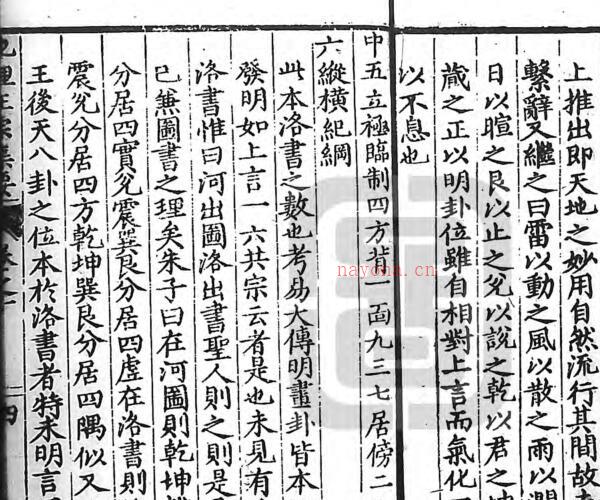 上推出即天地之妙用自然流行其間故
繫辭又繼之曰雷以動之風以散之雨以
日以暄之艮以止之兌以說之乾以君之
藏之正以明卦位雖自相對上言而氣化
以不息也
中五立極臨制四方背一面九三七居傍二
六縱橫紀綱
此本洛書之數也考易大傳明畫卦皆本
發明如上言一六共宗云者是也未見有
洛書惟曰河出圖洛出書聖人則之則是
已兼圖書之理矣朱子曰在河圖則乾坤
分居四實兌震巽艮分居四虛在洛書則
震兌分居四方乾坤巽艮分居四隅似又
王後天八卦之位本於洛書者特未明言
理正宗集要 卷之 四
nayona.cn